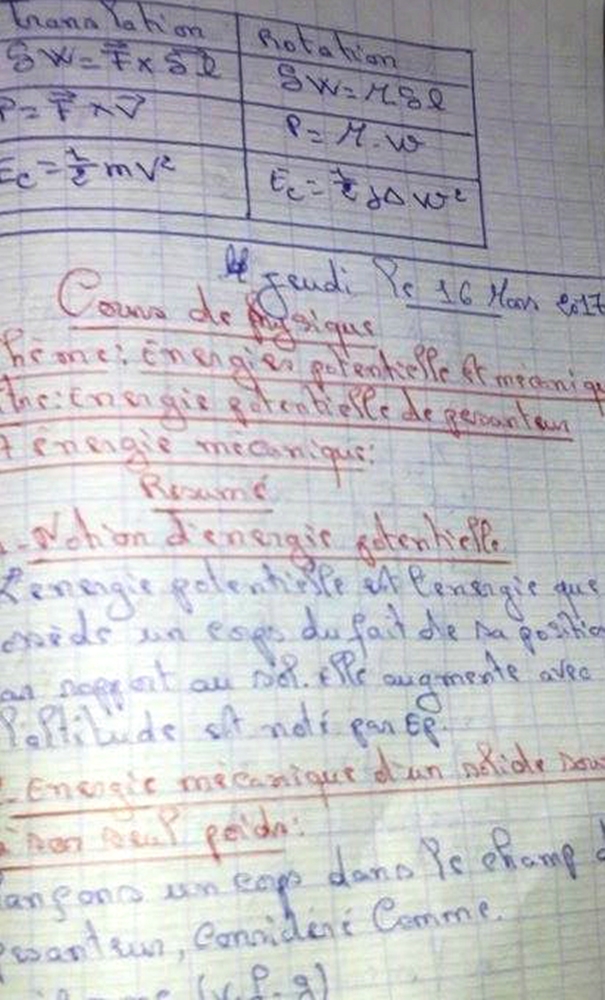 Translation Rotation
δW = F⃗ × δl⃗ δW = M δl
P = F⃗ × V⃗ P = M . w
Ec = 1/2 mv² Ec = 1/2 J∆ w²
Jeudi le 16 Mars 2017
Cours de physique
hème : Énergies potentielle et mécaniqu
tre : Energie potentielle de pesanteur
t énergie mécanique :
Résumé
- Notion d'énergie potentielle
L'energie potentielle est l'energie que
ossède un corps du fait de sa positio
ar rapport au sol. elle augmente avec
l'altitude est noté par Ep.
- Energie mécanique d'un solide sou
à son seul poids :
ançons un corps dans le champ d
esanteur, Considéré Comme.